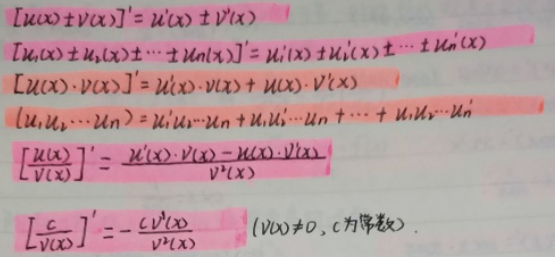 [u(x)±v(x)]'=u'(x)±v'(x)
[u₁(x)±u₂(x)±⋯±uₙ(x)]'=u₁'(x)±u₂'(x)±⋯±uₙ'(x)
[u(x)·v(x)]'=u'(x)·v(x)+u(x)·v'(x)
(u₁u₂⋯uₙ)=u₁'u₂⋯uₙ+u₁u₂'⋯uₙ+⋯+u₁u₂⋯uₙ'
[u(x)/v(x)]'=(u'(x)·v(x)-u(x)·v'(x))/v²(x)
[c/v(x)]'=-cv'(x)/v²(x) (v(x)≠0,c为常数).